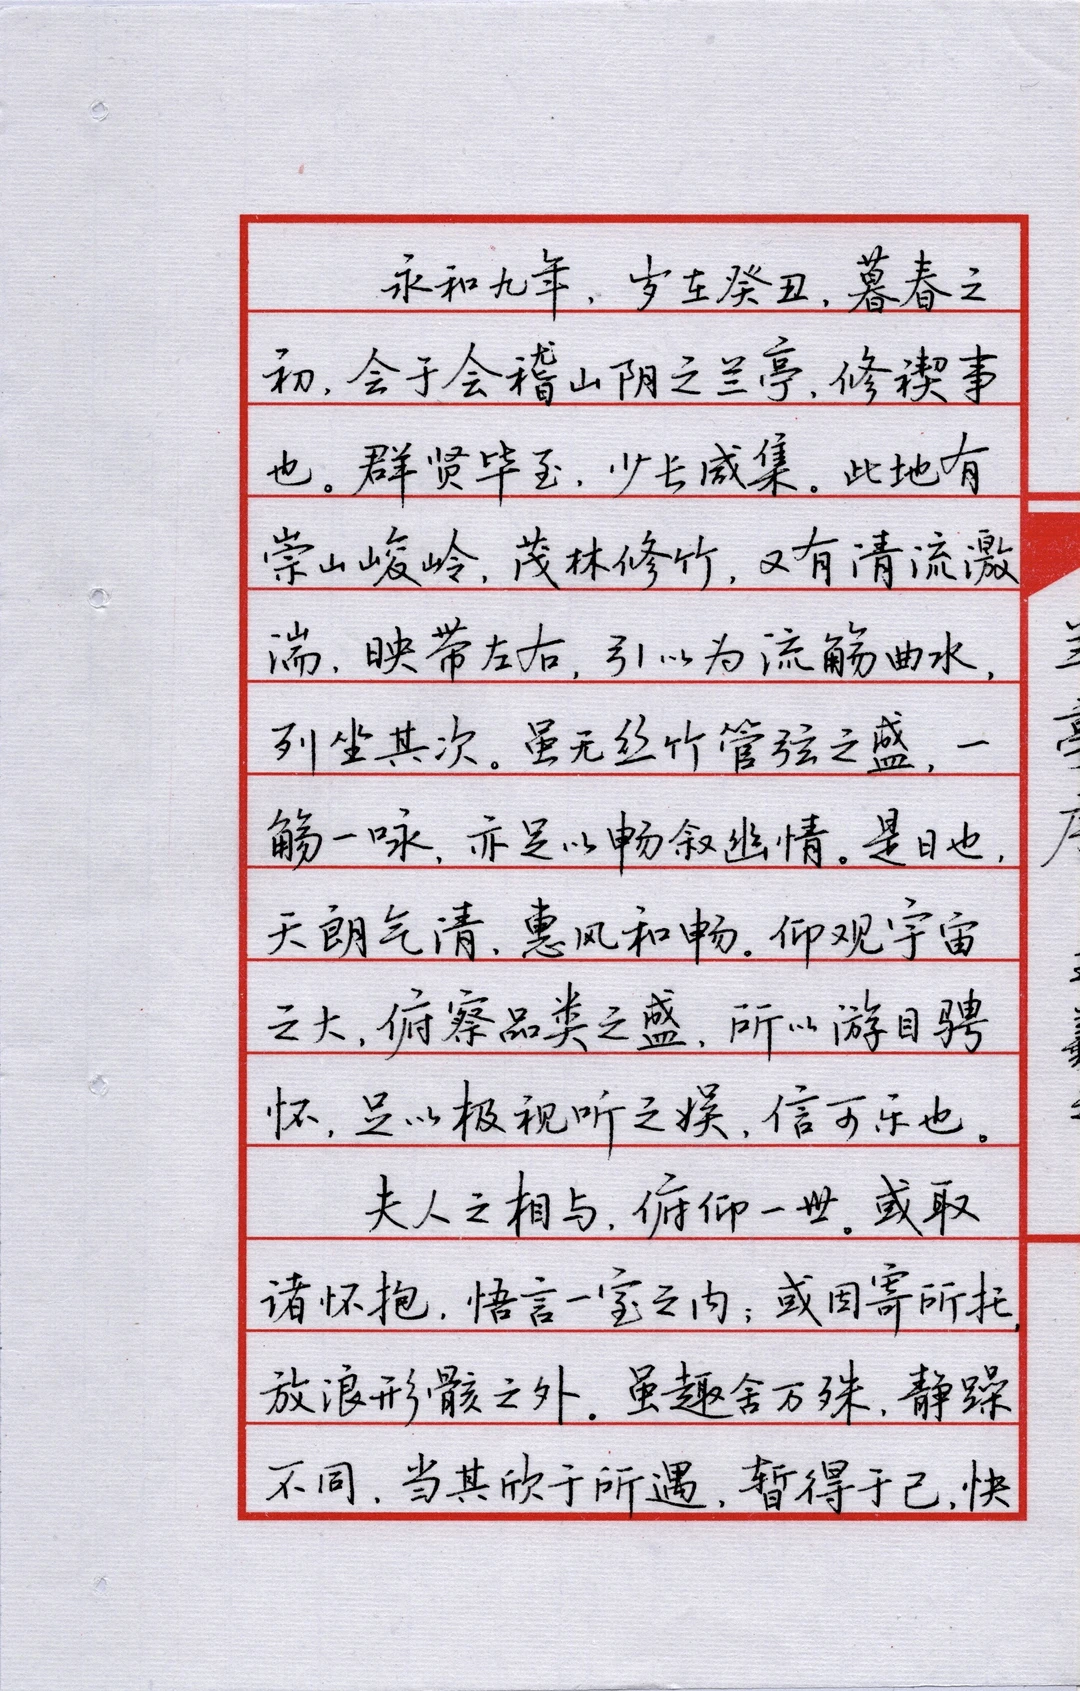 永和九年，岁在癸丑，暮春之
初，会于会稽山阴之兰亭，修禊事
也。群贤毕至，少长咸集。此地有
崇山峻岭，茂林修竹，又有清流激
湍，映带左右，引以为流觞曲水，
列坐其次。虽无丝竹管弦之盛，一
觞一咏，亦足以畅叙幽情。是日也，
天朗气清，惠风和畅。仰观宇宙
之大，俯察品类之盛，所以游目骋
怀，足以极视听之娱，信可乐也。
夫人之相与，俯仰一世。或取
诸怀抱，悟言一室之内；或因寄所托，
放浪形骸之外。虽趣舍万殊，静躁
不同，当其欣于所遇，暂得于己，快
兰亭序